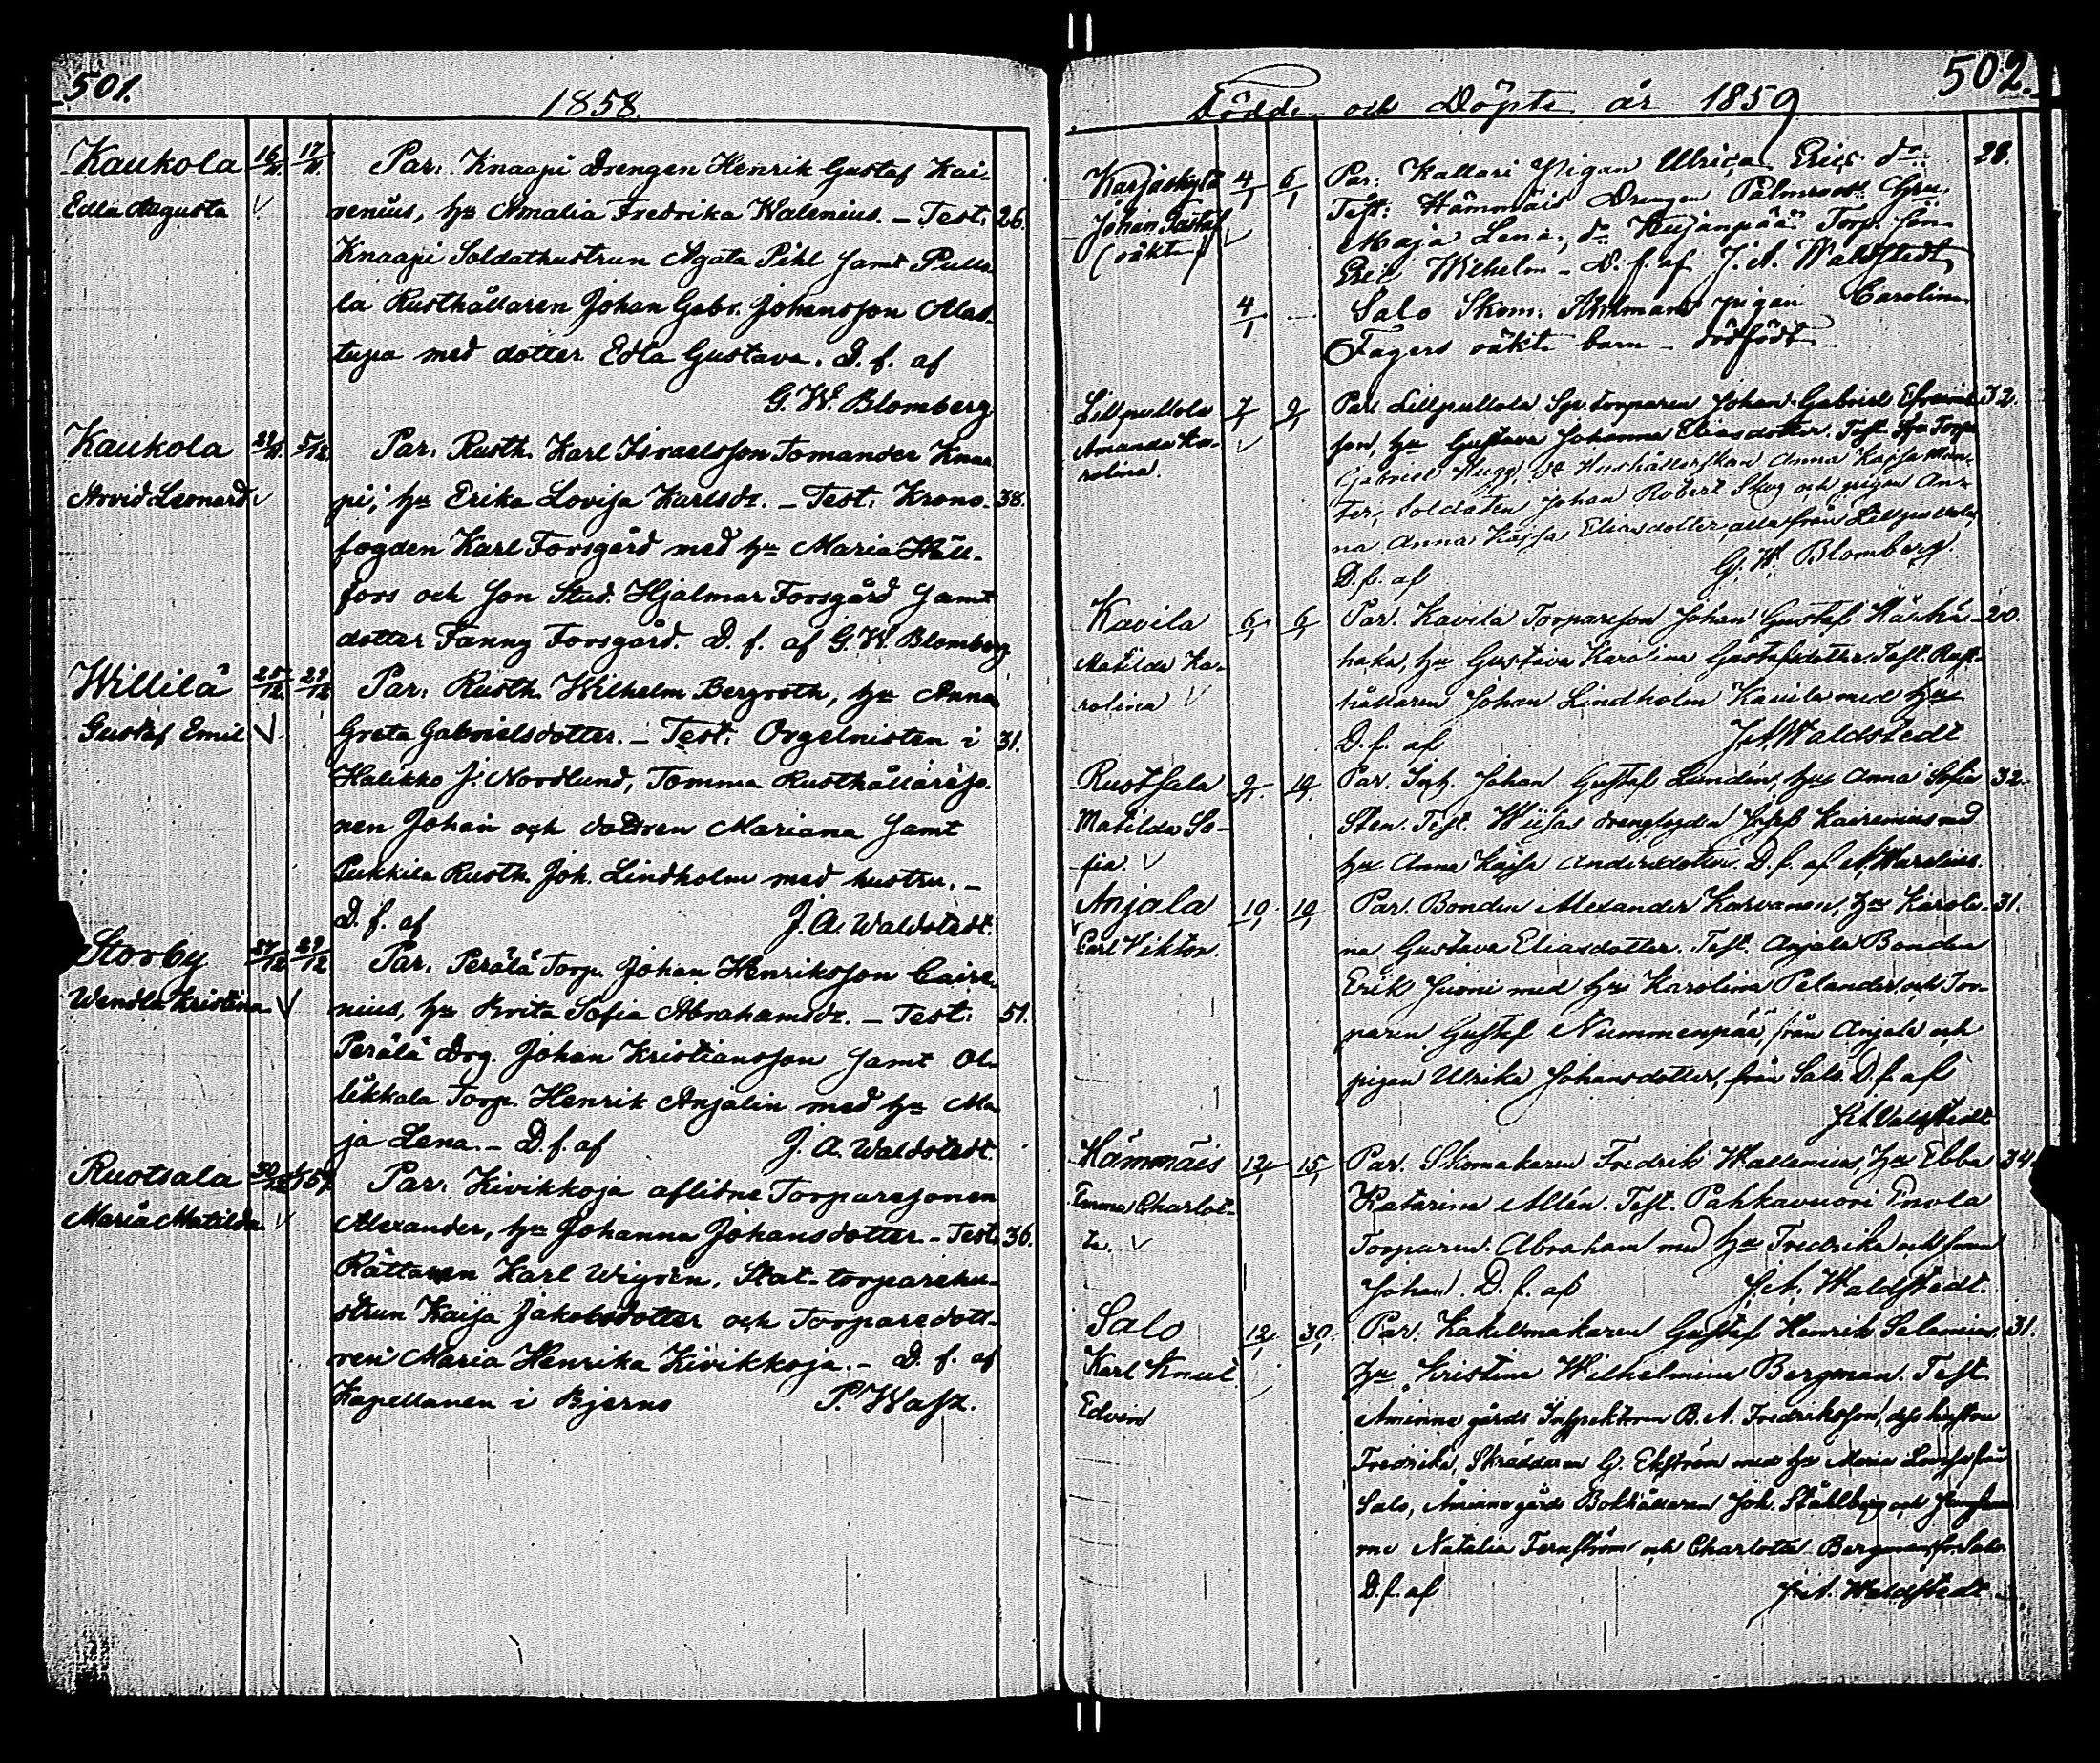 501.
1858.
Kaukola 16/11. 17/11. Par: Knaapi Drengen Henrik Gustaf Kai-
Edla Augusta renius, hu Amalia Fredrika Walenius. - Test: 26.
Knaapi Soldathustrun Agata Pihl samt Pulla-
la Rusthållaren Johan Gabr. Johansson Alas-
tupa med dotter Edla Gustava. D. f. af
G. W. Blomberg
Kaukola 5/12. Par: Rusth. Karl Israelsson Tomander Knaa-
Arvid Leonard pi, hu Erika Lovisa Karlsdr. - Test: Krono- 38.
fogden Karl Forsgård med hu Maria Häll-
fors och son Stud. Hjalmar Forsgård samt
dotter Fanny Forsgård. D. f. af G. W. Blomberg
Willilä 25/12. 29/12 Par: Rusth. Wilhelm Bergroth, hu Anna
Gustaf Emil Greta Gabrielsdotter. - Test: Orgelnisten i 31.
Halikko J. Nordlund, Tomma Rusthållareso-
nen Johan och dottren Mariana samt
Pukkila Rusth. Joh. Lindholm med hustru. -
D. f. af J. A. Waldstedt.
Storby 27/12 29/12 Par: Perälä Torp. Johan Henriksson Caire-
Wendla Kristina nius, hu Brita Sofia Abrahamsdr. - Test: 51.
Perälä Drg. Johan Kristiansson samt Ol-
likkala Torp. Henrik Anjalin med hu Ma-
ja Lena. - D. f. af J. A. Waldstedt.
Ruotsala 30/12 Par: Kivikkoja aflidne Torparesonen
Maria Matilda Alexander, hu Johanna Johansdotter - Test: 36.
Rättaren Karl Wigrén, Stat-torparehu-
strun Kaisa Jakobsdotter och Torparedott-
ren Maria Henrika Kivikkoja. - D. f. af
Kapellanen i Bjerno P. Wasz.
502.
Födde och Döpte år 1859
Karjaskylä 4/1 6/1 Par: Kallari Pigan Ulrica Erics dr: 28.
Johan Gustaf Test: Hämmäis Drengen Palmroos
(oäkta) Maja Lena, dr: Kujanpää Torp. son
Eric Wilhelm - D. f. af J. A. Waldstedt
4/1 - Salo Skom: Ahlmans pigan Carolina
Fagers oäkta barn - dödfödt -
Lillpullola 7/1 9/1 Par. Lillpullola Torparen Johan Gabriel Efraims- 32.
Amanda Ka- son, hu Gustava Johanna Eliasdotter. Test.
rolina. Gabriel Hushållerskan Anna Kajsa Män-
ter, Soldaten Johan Robert Skog och pigan An-
na Anna Kajsa Eliasdotter, alla från Lillpullola,
D. f. af G. W. Blomberg.
Kavila 6/1 6/1 Par. Kavila Torpareson Johan Gustaf 20.
Matilda Ka- haka, hu Gustava Karolina Gustafsdotter. Test. Rust-
rolina hållaren Johan Lindholm Kavila med hu
D. f. af J. A. Waldstedt
Ruotsala 9/1 Par. Inh. Johan Gustaf Lundén, hu Anna Sofia 32.
Matilda So- Sten. Test. Wiisas drengfogden Josef Kairenius med
fia. hu Anna Kajsa Andersdotter. D. f. af
Anjala 10/1 Par. Bonden Alexander Karvanen, hu Karoli- 31.
Carl Viktor. na Gustava Eliasdotter. Test. Anjala Bonden
Erik Juoni med hu Karolina Pelander och Tor-
paren Gustaf Nummenpää, från Anjala och
pigan Ulrika Johansdotter, från Salo. D. f. af
J. A. Waldstedt
Hämmäis 12/1 15/1 Par. Skomakaren Fredrik Wallenius, hu Ebba 34.
Emma Charlot- Katarina Allén. Test. Pahkavuori
ta. Torparen Abraham med hu Fredrika och sonen
Johan. D. f. af J. A. Waldstedt.
Salo 12/1 30/1 Par. Kakelmakaren Gustaf Henrik Salenius, 31.
Karl Knut hu Kristina Wilhelmina Bergman. Test.
Edvin Åminne gårds Inspektoren B. A. Fredriksson, dess hustru
Fredrika, Skräddaren G. Ekström med hu Maria Lovisa från
Salo, Åminne gårds Bokhållaren Joh. Ståhlberg och
Natalia Fernström och Charlotta Bergman fr. Salo.
D. f. af J. A. Waldstedt.